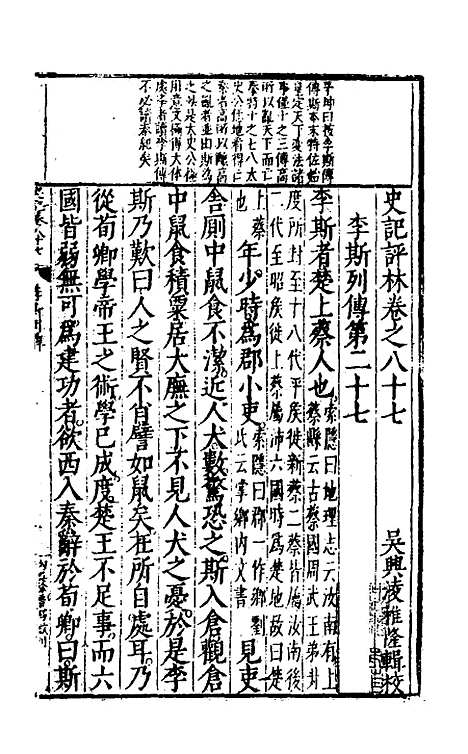 史記評林卷之八十七
吳興凌稚隆輯校
李斯列傳第二十七
李斯者楚上蔡人也索隱曰地理志云汝南有上
蔡縣云古蔡國周武王弟
度所封至十八代平侯徙新蔡二蔡皆屬汝南後
二代至昭侯徙上蔡屬沛六國時爲楚地故曰楚
上蔡也年少時爲郡小吏索隱曰鄉一作鄉劉氏云掌鄉內文書見吏
舍廁中鼠食不潔近人犬數驚恐之斯入倉觀倉
中鼠食積粟居大廡之下不見人犬之憂於是李
斯乃歎曰人之賢不肖譬如鼠矣在所自處耳乃
從荀卿學帝王之術學已成度楚王不足事而六
國皆弱無可爲建功者欲西入秦辭於荀卿曰斯
曰按李斯傳
傳斯本末特佐始
皇定天下變法諸
事僅十之三傳高
所以亂天下而亡
秦特十之七八太
史公恁地看得
秦者高所以釀高
之亂者並由斯爲
之此是太史公極
用意文極得大体
處學者讀李斯傳
不必讀秦紀矣